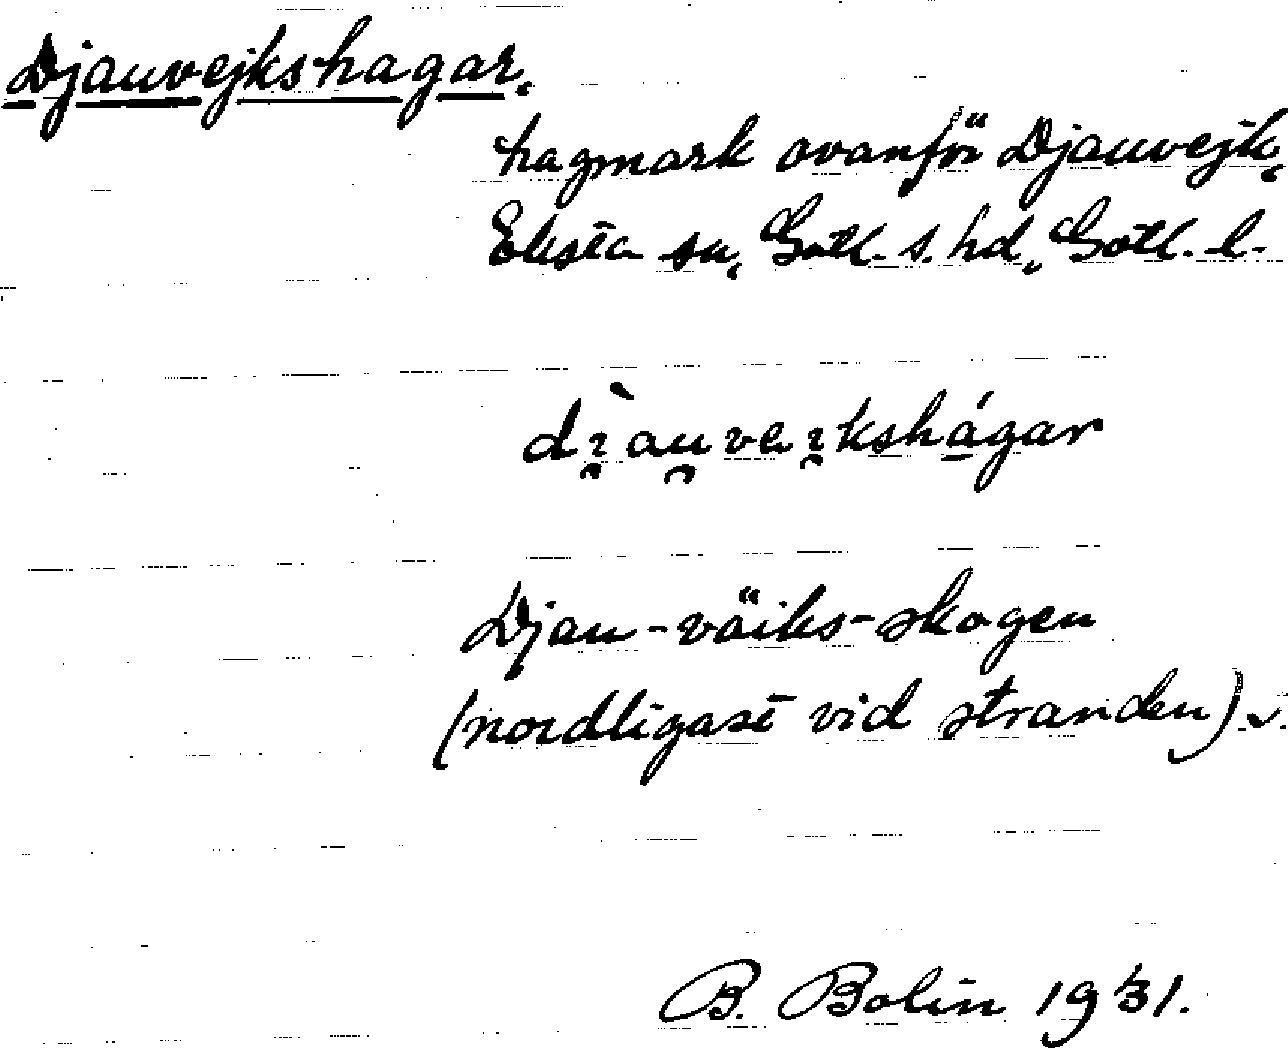 Djauvejkshagar.
hagmark ovanför Djauvejk,
Eksta sn, Gotl. s. hd, Gotl. l.
dı̯̀au̯veı̯kshágar
Djau-väiks-skogen
(nordligast vid stranden) v.
B. Bolin 1931.